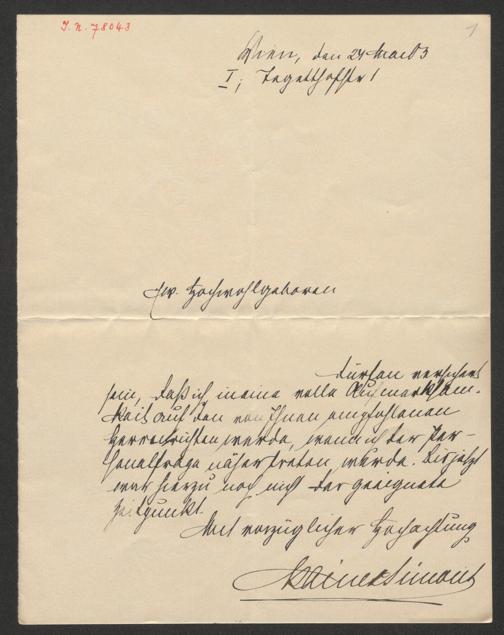 I. N. 78043
1
Wien, den 24 Mai 03
I; Tegetthofstr 1
Ew. Hochwohlgeboren
dürfen versichert
sein, daß ich meine volle Aufmerksam-
keit auf den von Ihnen empfohlenen
Herrn richten werde, wenn ich der Per-
sonalfrage näher treten würde. Bis jetzt
war hierzu noch nicht der geeignete
Zeitpunkt.
Mit vorzüglicher Hochachtung
Rainer Simons